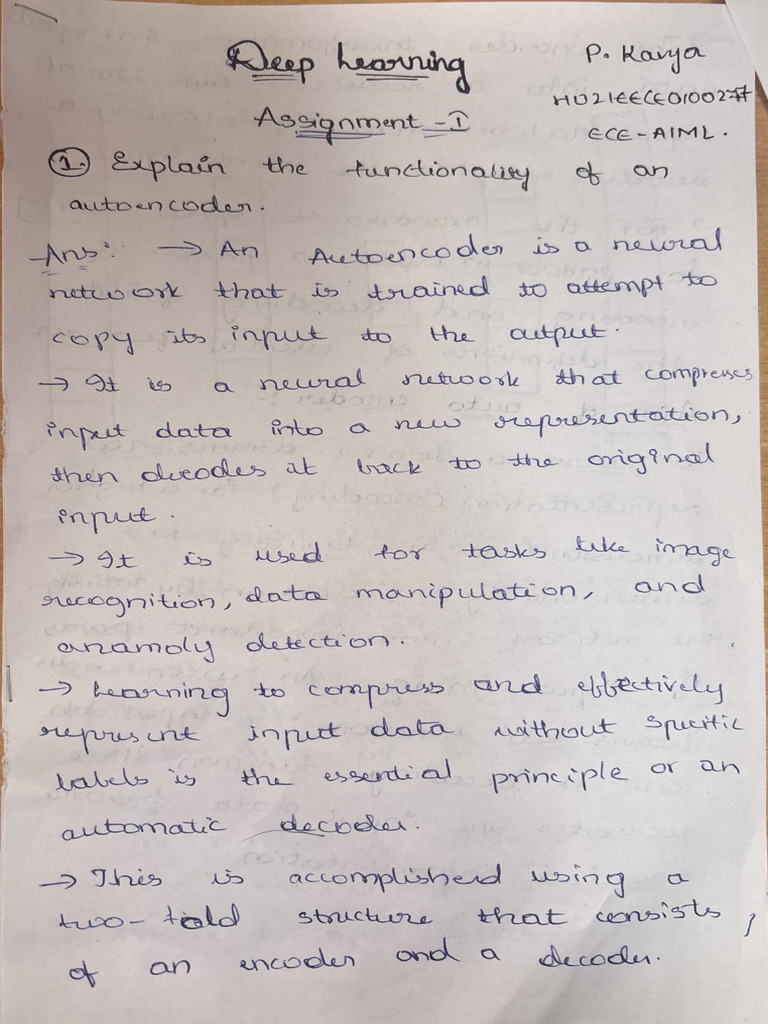 Deep Learning
P. Kavya
HU21EECE0100277
Assignment - I
ECE-AIML.
1. Explain the functionality of an
autoencoder.
Ans: → An Autoencoder is a neural
network that is trained to attempt to
copy its input to the output.
→ It is a neural network that compresses
input data into a new representation,
then decodes it back to the original
input.
→ It is used for tasks like image
recognition, data manipulation, and
anamoly detection.
→ Learning to compress and effectively
represent input data without specific
labels is the essential principle or an
automatic decoder.
→ This is accomplished using a
two-fold structure that consists
of an encoder and a decoder.